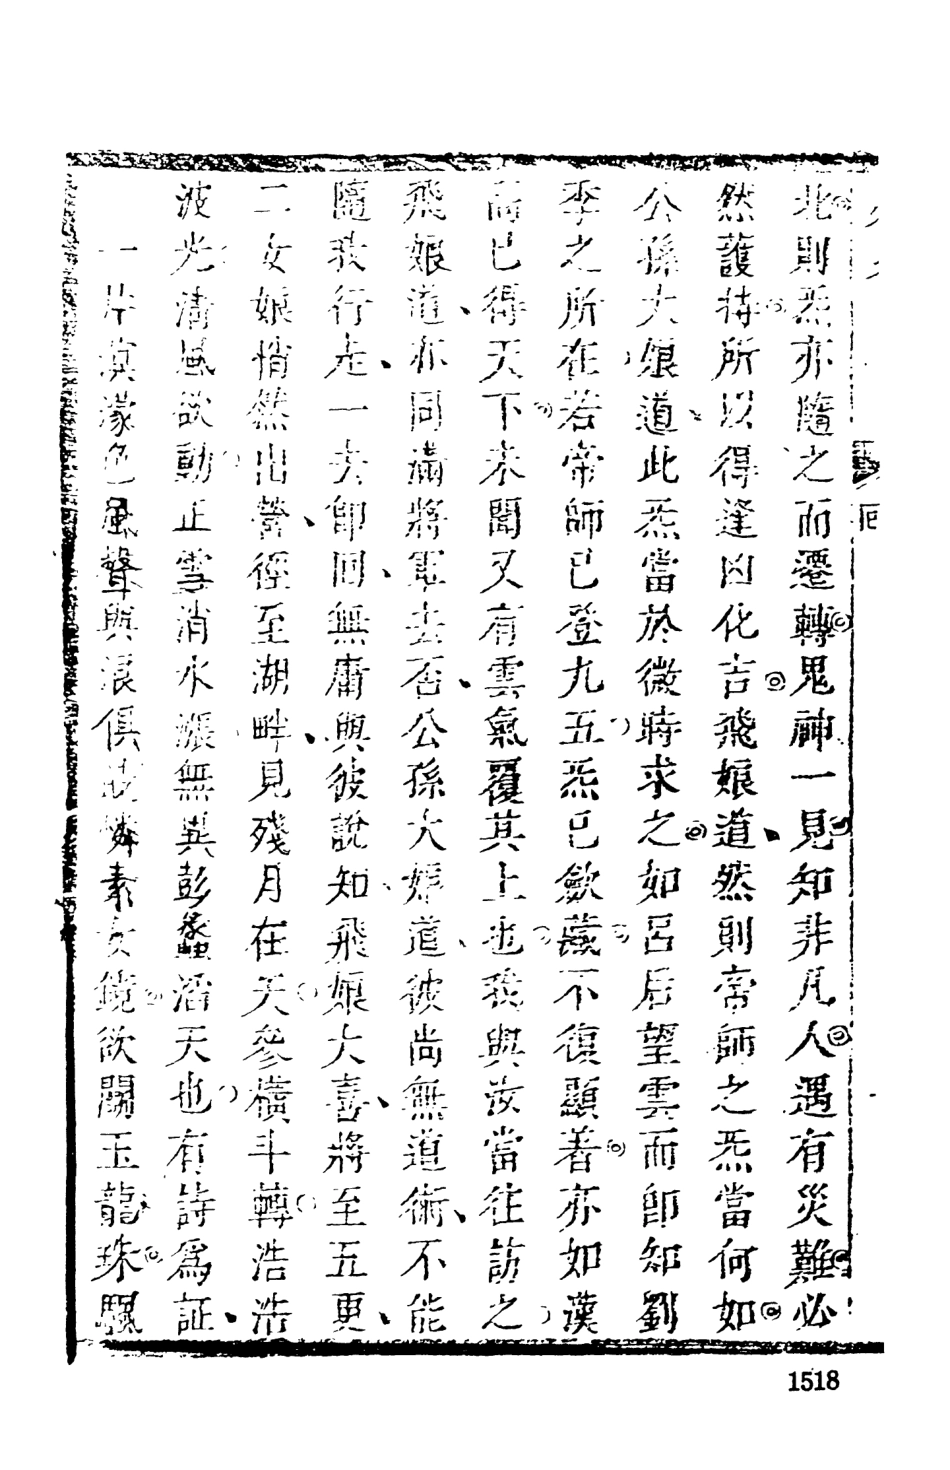 北則炁亦隨之而遷轉鬼神一見知非凡人遇有災難必
然護持所以得逢凶化吉飛娘道然則帝師之炁當何如
公孫大娘道此炁當於微時求之如呂后望雲而即知劉
季之所在若帝師已登九五炁已斂藏不復顯著亦如漢
高已得天下未聞又有雲氣覆其上也我與汝當往訪之
飛娘道亦同滿將軍去否公孫大娘道彼尚無道術不能
隨我行走一去即回無庸與彼說知飛娘大喜將至五更
二女娘悄然出營徑至湖畔見殘月在天參橫斗轉浩浩
波光淸風欲動正雪消水漲無異彭蠡滔天也有詩爲証
一片溟濛色風聲與浪俱 憐素女鏡欲關玉龍珠颿
1518